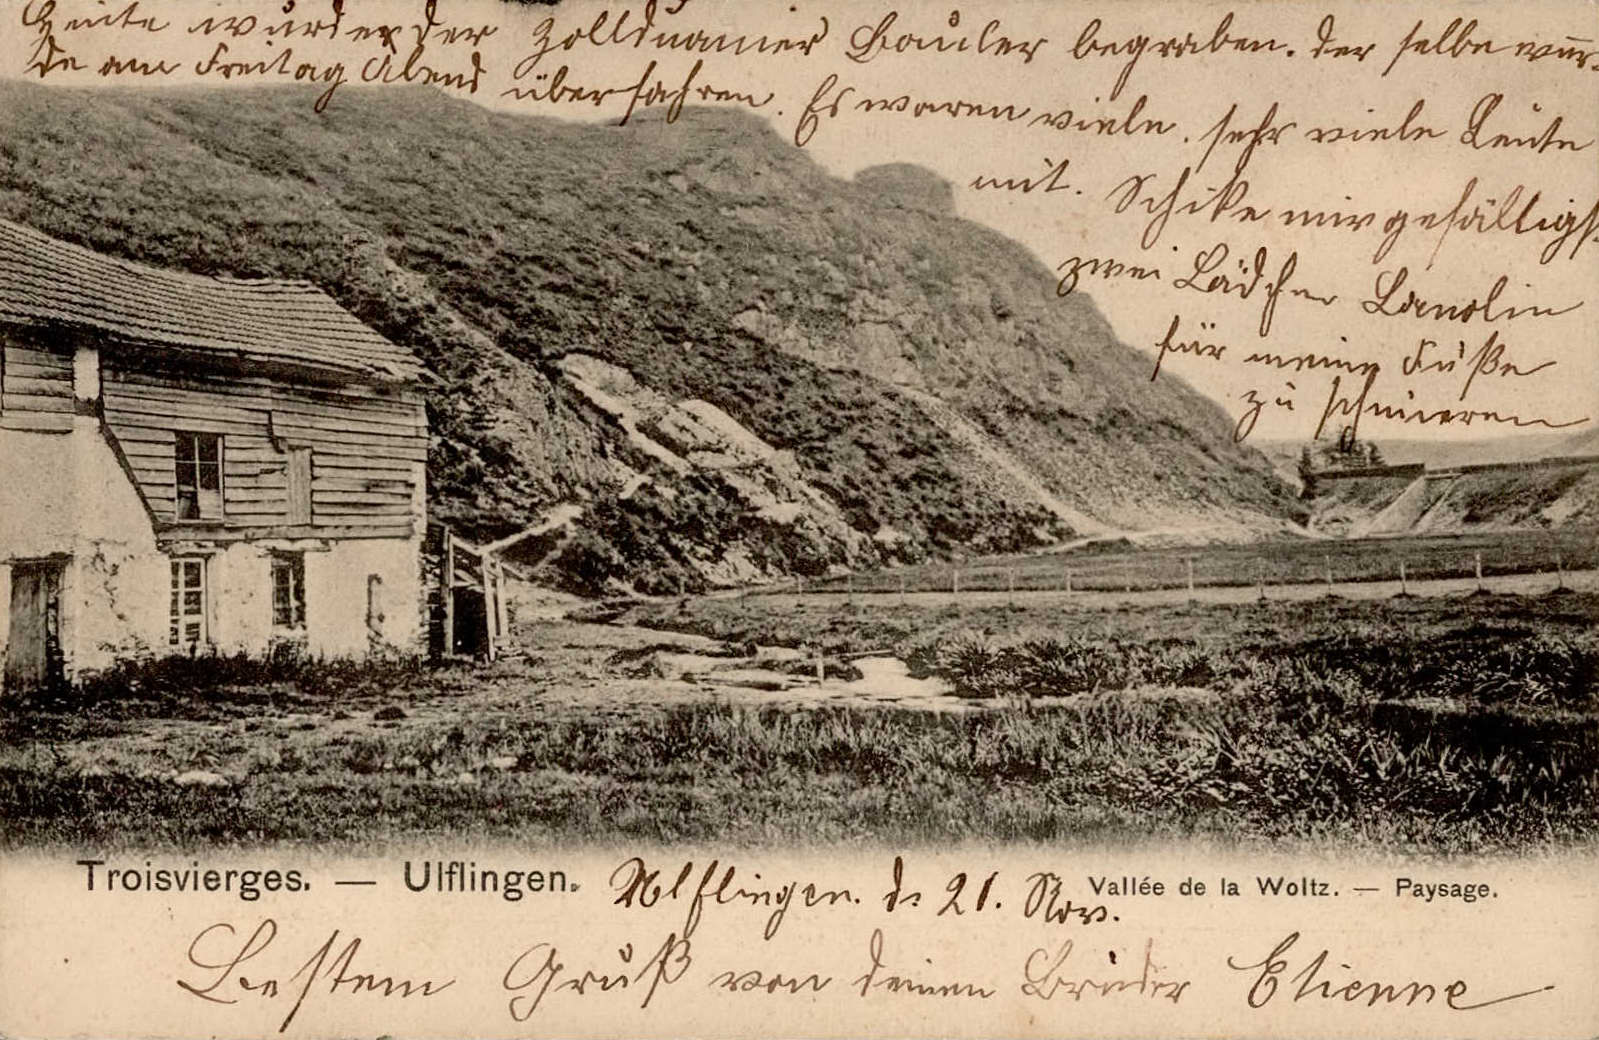 Heute wurde der Zollduanier Bauler begraben. der selbe wur-
de am Freitag Abend überfahren. Es waren viele, sehr viele Leute
mit. Schike mir gefälligst
zwei Lädchen Lanolin
für meine Füße
zu schmieren
Troisvierges. — Ulflingen. Ulflingen. d. 21. Nov. Vallée de la Woltz. — Paysage.
Bestem Gruß von deinen Bruder Etienne